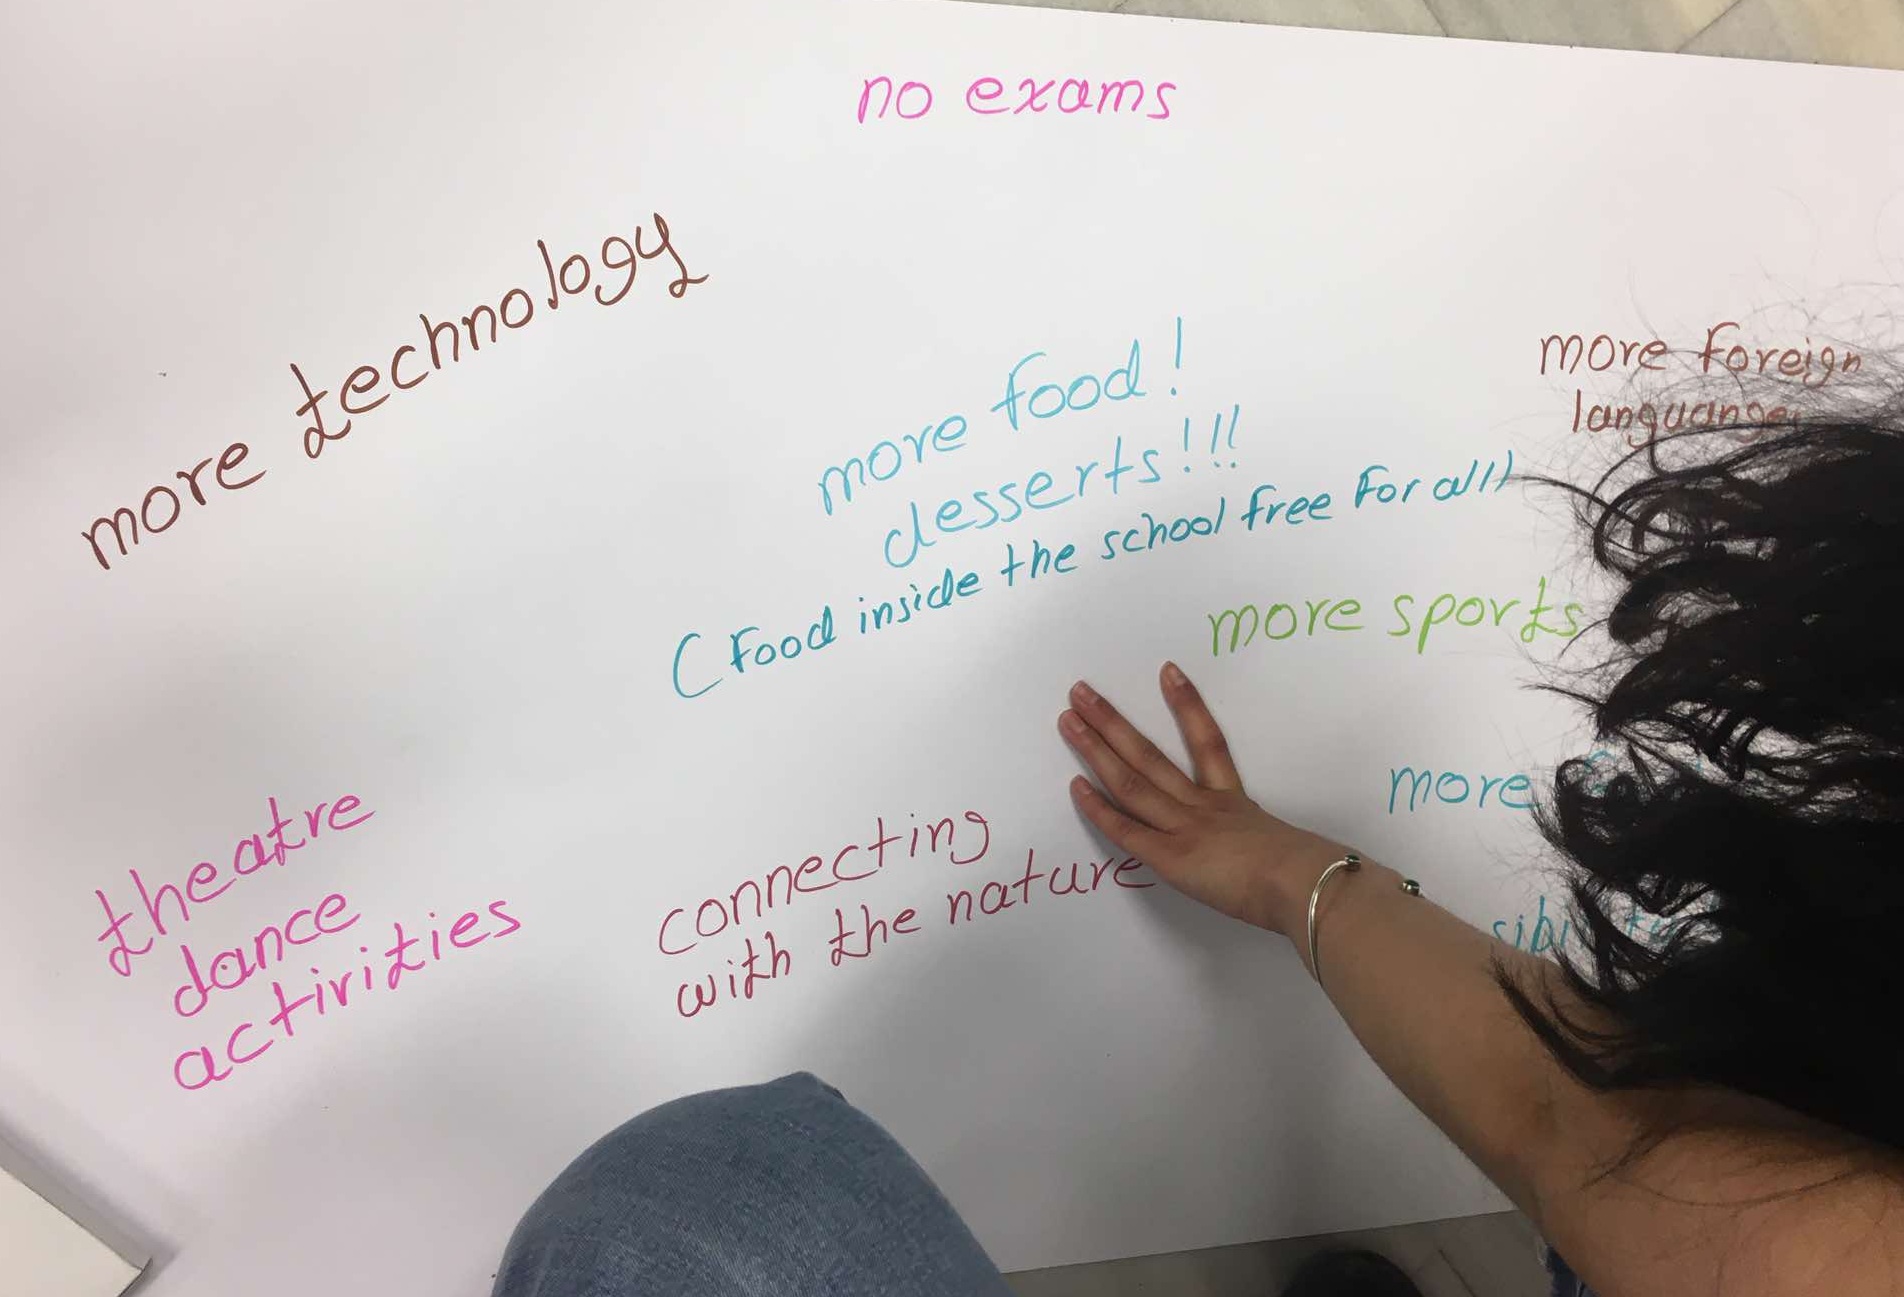 no exams
more technology
more foreign
languange
more food!
desserts!!!
(Food inside the school free for all)
more sports
more
theatre
dance
activities
connecting
with the nature